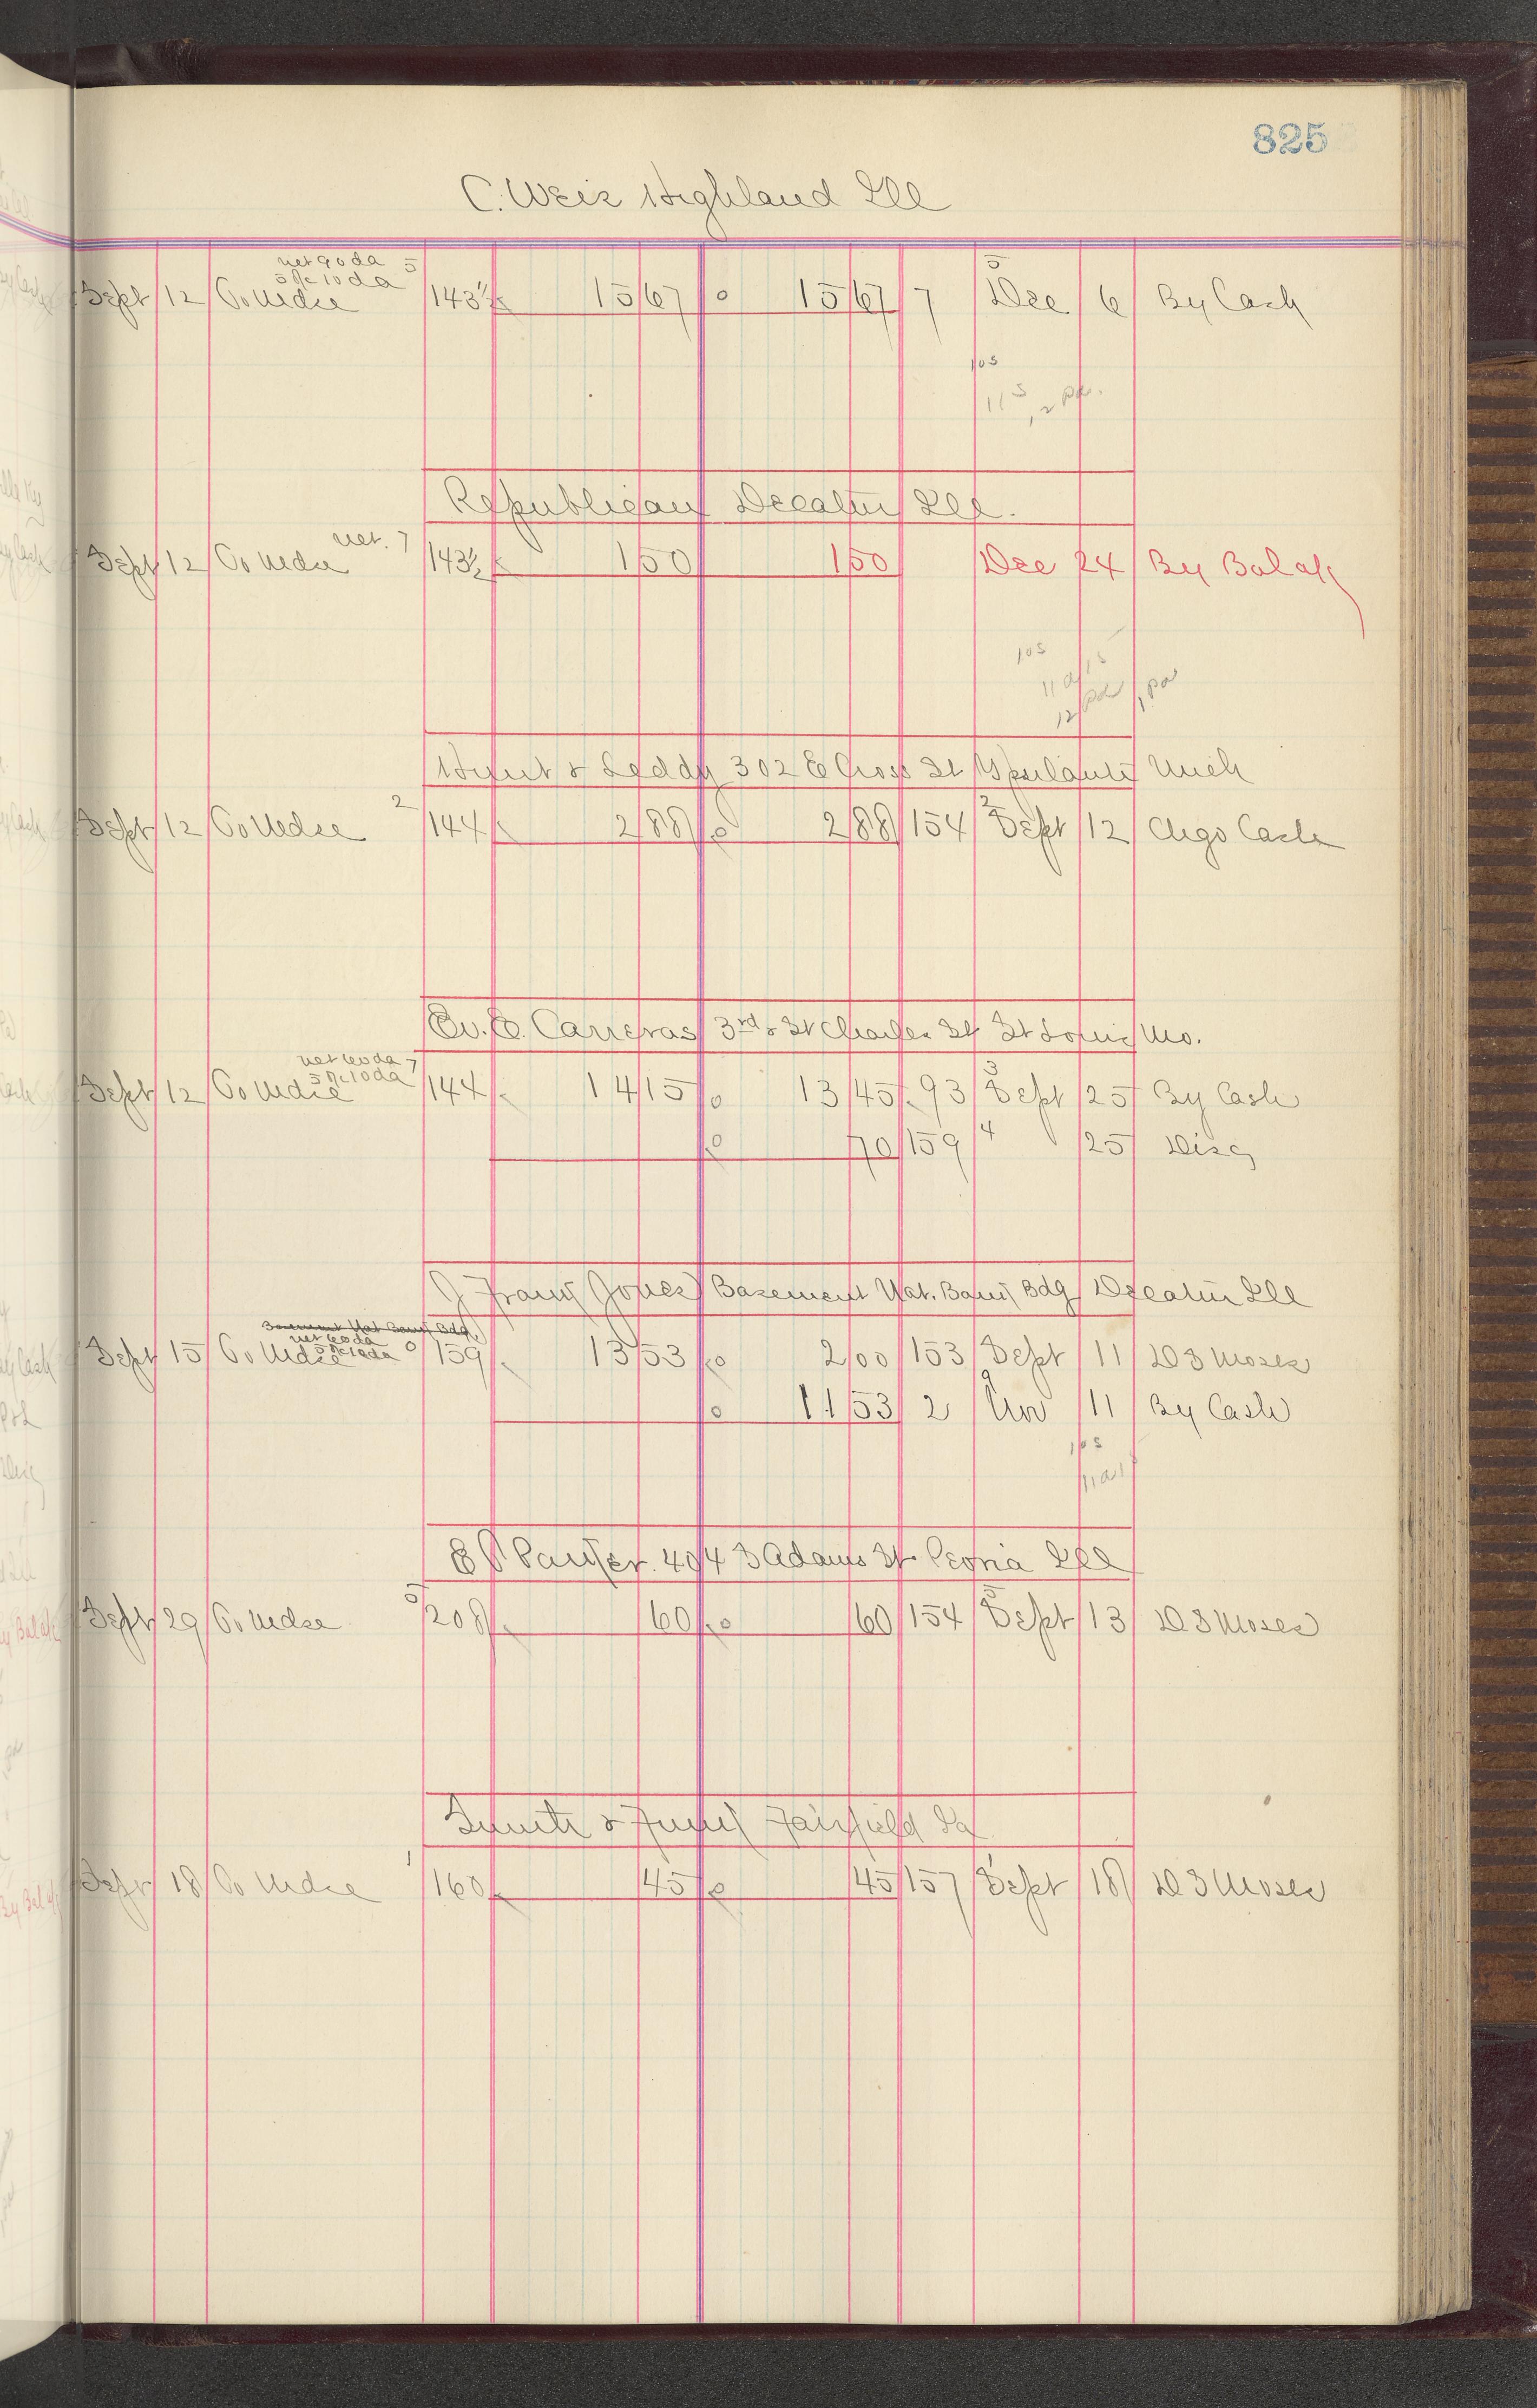 825
C. Weis Highland Ill
net 90 da 5
5% 10 da 5
Sept 12 To Mdse 143½ 15 67 15 67 7 Dec 6 By Cash
10 s
11 s, 2 pd.
Republican Decatur Ill.
net. 7
Sept 12 To Mdse 143½ 1 50 1 50 Dec 24 By Bal a/c
10 s
12 pd 1 pd
Hunt & Leddy 302 E Cross St Ypsilanti Mich
2 2
Sept 12 To Mdse 144 2 88 2 88 154 Sept 12 Chgo Cash
Ev. E. Carreras 3rd & St Charles St St Louis Mo.
net 60 da 7
5% 10 da 3
Sept 12 To Mdse 144 14 15 13 45 93 Sept 25 By Cash
70 159 4 25 Disc
J Frank Jones Basement Nat. Bank Bdg Decatur Ill
Basement Nat Bank Bdg.
net 60 da
5% 10 da 0
Sept 15 To Mdse 159 13 53 2 00 153 Sept 11 D S Moses
11 53 2 Nov 11 By Cash
10 s
E P 404 S Adams St Peoria Ill
5 5
Sept 29 To Mdse 208 60 60 154 Sept 13 D S Moses
& Funk Fairfield Ia
1 1
Sept 18 To Mdse 160 45 45 157 Sept 18 D S Moses